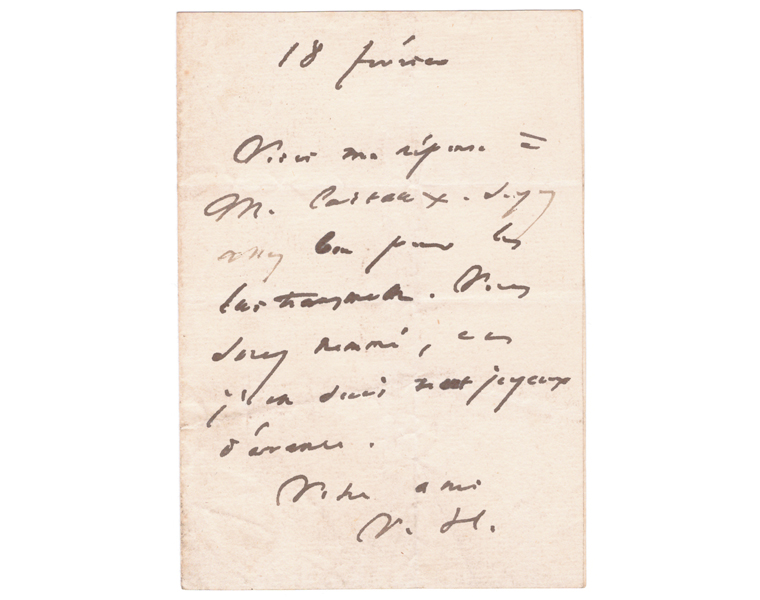 18 février
Voici ma réponse =
M. Castaux. Soyez
assez bon pour la
lui transmettre. Vous
serez nommé, et
j'en suis tout joyeux
d'avance.
Votre ami
V. H.